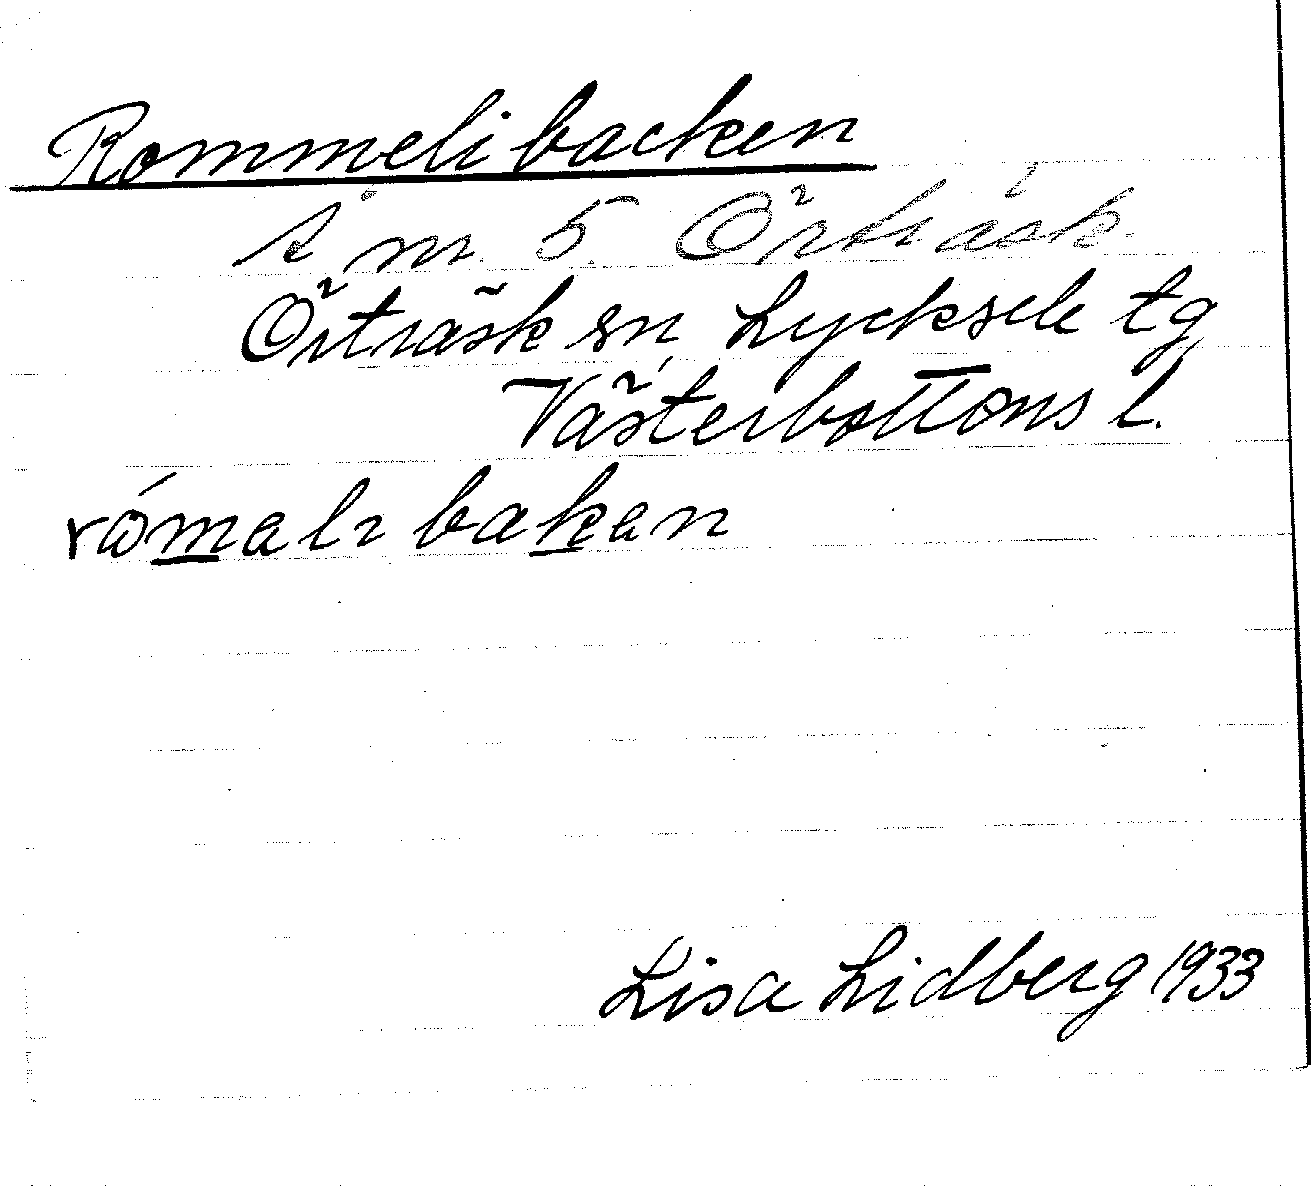 Rommelibacken
å nr. 5 Örträsk
Örträsk sn, Lycksele tg
Västerbottens l.
rómalı bakan
Lisa Lidberg 1933